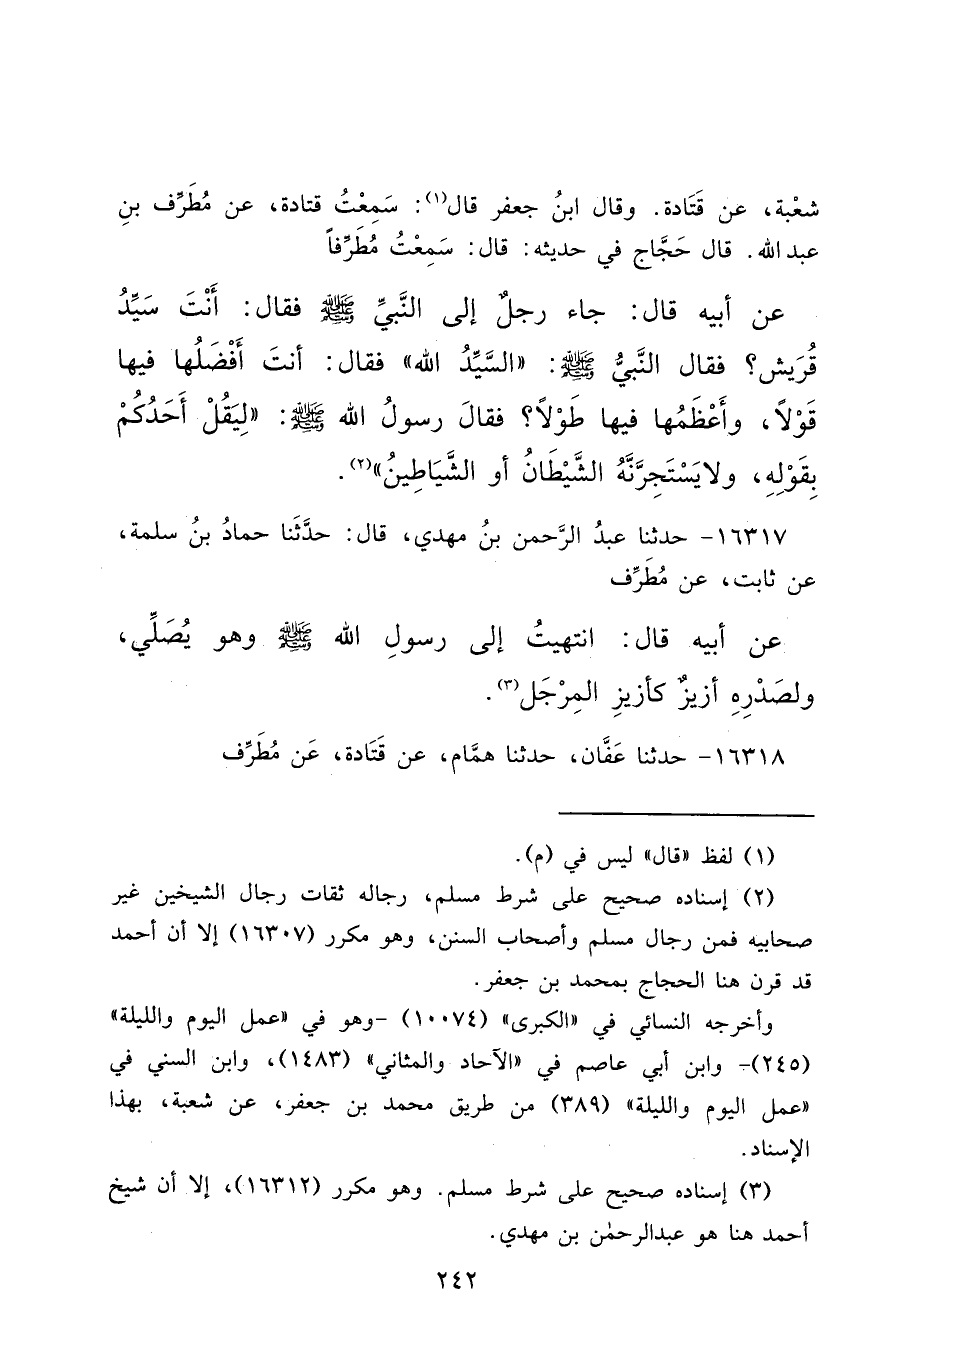 شعْبة، عن قَتَادة. وقال ابنُ جعفر قال(١): سَمِعْتُ قتادة، عن مُطَرِّف بنِ
عبد الله. قال حَجَّاج في حديثه: قال: سَمِعْتُ مُطَرِّفاً
عن أبيه قال: جاء رجلٌ إلى النَّبيِّ ﷺ فقال: أَنْتَ سَيِّدُ
قُرَيش؟ فقال النَّبيُّ ﷺ: «السَّيِّدُ الله» فقال: أنتَ أَفْضَلُها فيها
قَوْلاً، وأَعْظَمُها فيها طَوْلاً؟ فقالَ رسولُ الله ﷺ: «لِيَقُلْ أَحَدُكُمْ
بِقَوْلِهِ، ولايَسْتَجِرَّنَّهُ الشَّيْطَانُ أو الشَّيَاطِينُ»(٢).
١٦٣١٧- حدثنا عبدُ الرَّحمن بنُ مهدي، قال: حدَّثَنا حمادُ بنُ سلمة،
عن ثابت، عن مُطَرِّف
عن أبيه قال: انتهيتُ إلى رسولِ الله ﷺ وهو يُصَلِّي،
ولصَدْرِهِ أزيزٌ كأزيزِ المِرْجَل(٣).
١٦٣١٨- حدثنا عَفَّان، حدثنا همَّام، عن قَتَادة، عَن مُطَرِّف
(١) لفظ «قال» ليس في (م).
(٢) إسناده صحيح على شرط مسلم، رجاله ثقات رجال الشيخين غير
صحابيه فمن رجال مسلم وأصحاب السنن، وهو مكرر (١٦٣٠٧) إلا أن أحمد
قد قرن هنا الحجاج بمحمد بن جعفر.
وأخرجه النسائي في «الكبرى» (١٠٠٧٤) -وهو في «عمل اليوم والليلة»
(٢٤٥)- وابن أبي عاصم في «الآحاد والمثاني» (١٤٨٣)، وابن السني في
«عمل اليوم والليلة» (٣٨٩) من طريق محمد بن جعفر، عن شعبة، بهذا
الإسناد.
(٣) إسناده صحيح على شرط مسلم. وهو مكرر (١٦٣١٢)، إلا أن شيخ
أحمد هنا هو عبدالرحمٰن بن مهدي.
٢٤٢